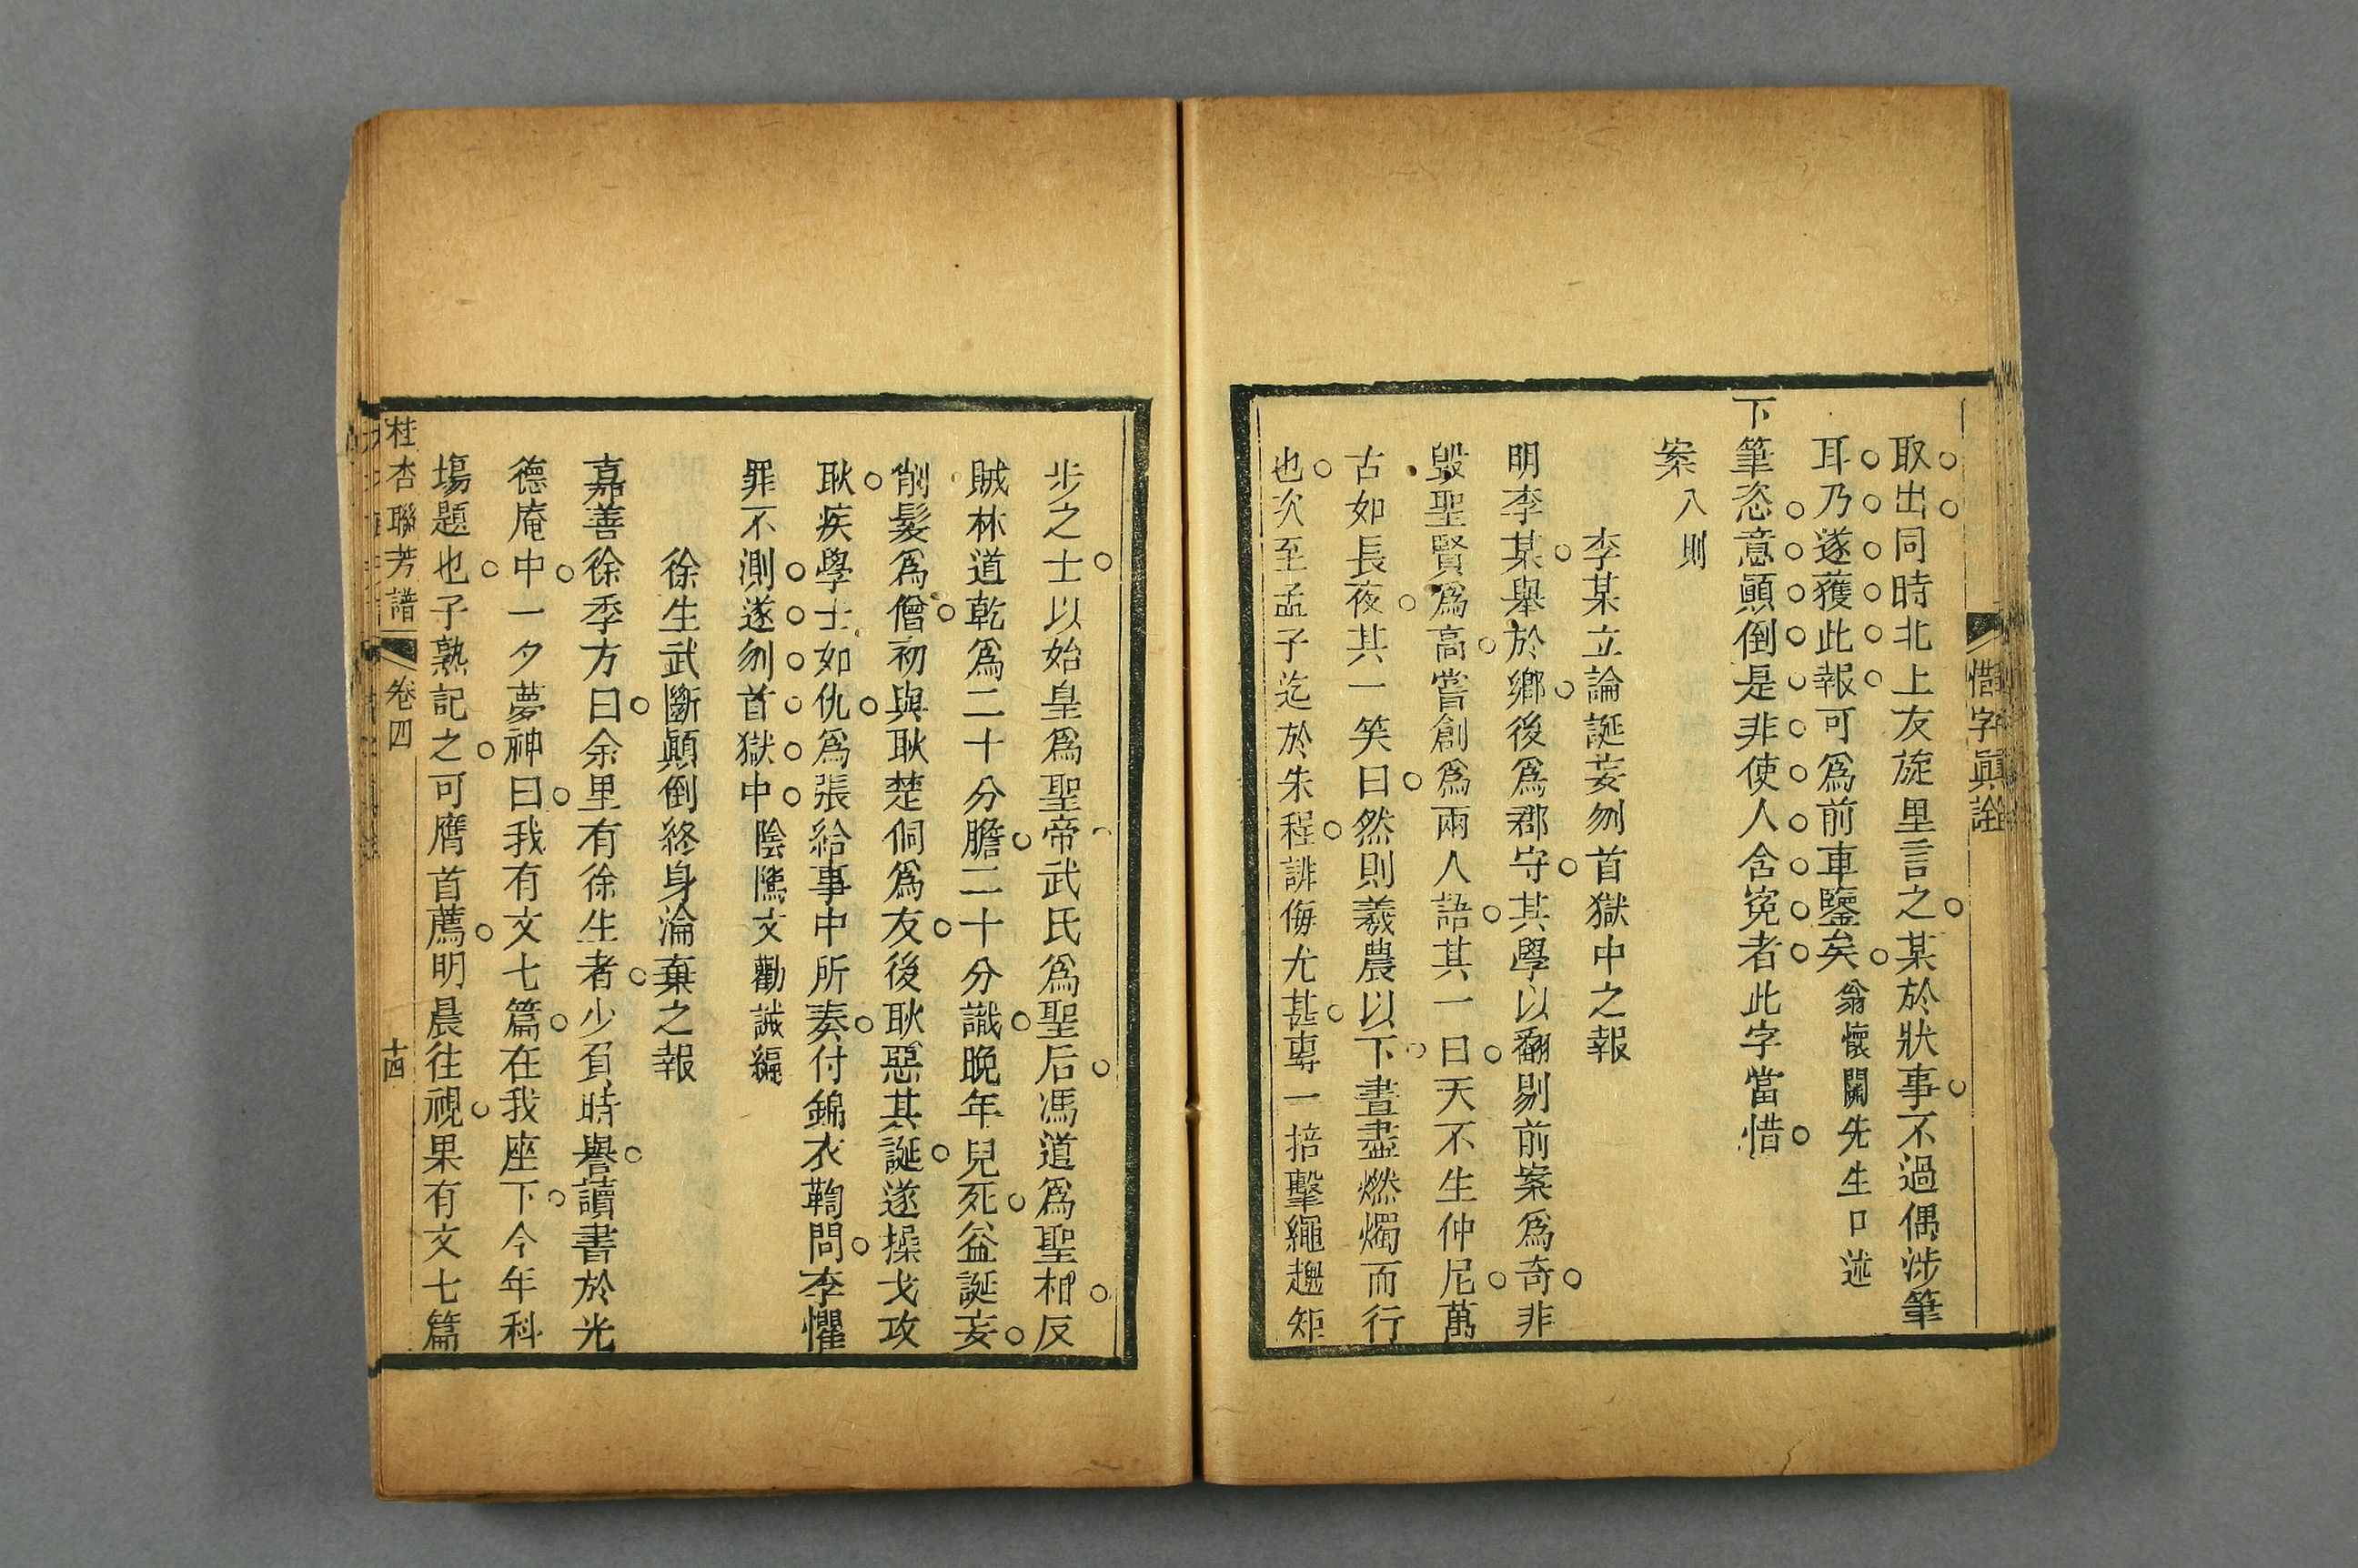 惜字眞詮
取出同時北上友旋里言之某於狀事不過偶涉筆
耳乃遂獲此報可爲前車鑒矣翁懷闌先生口述
下筆恣意顚倒是非使人含寃者此字當惜
案八則
李某立論誕妄刎首獄中之報
明李某舉於鄉後爲郡守其學以翻剔前案爲奇非
毀聖賢爲高嘗創爲兩人語其一曰天不生仲尼萬
古如長夜其一笑曰然則羲農以下晝盡燃燭而行
也次至孟子迄於朱程誹侮尤甚專一掊擊繩趨矩
步之士以始皇爲聖帝武氏爲聖后馮道爲聖相反
賊林道乾爲二十分膽二十分識晚年兒死益誕妄
削髮爲僧初與耿楚侗爲友後耿惡其誕遂操戈攻
耿疾學士如仇爲張給事中所奏付錦衣鞫問李懼
罪不測遂刎首獄中陰隲文勸誡編
徐生武斷顚倒終身淪棄之報
嘉善徐季方曰余里有徐生者少負時譽讀書於光
德庵中一夕夢神曰我有文七篇在我座下今年科
塲題也子熟記之可膺首薦明晨往視果有文七篇
桂杏聯芳譜 卷四 十四